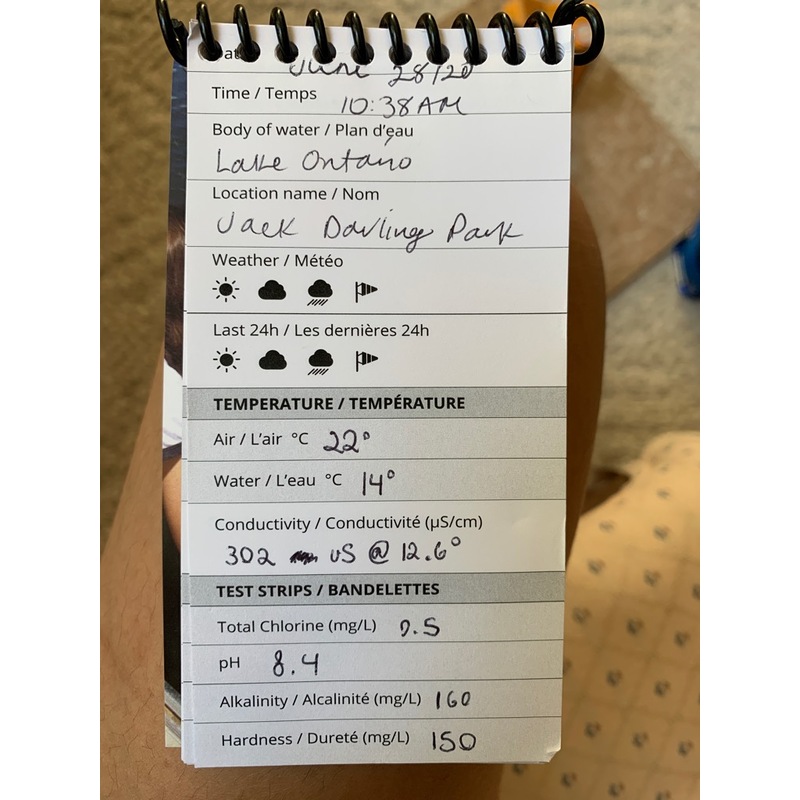 Date June 28/20
Time / Temps 10:38 AM
Body of water / Plan d'eau
Lake Ontario
Location name / Nom
Jack Darling Park
Weather / Météo
Last 24h / Les dernières 24h
TEMPERATURE / TEMPÉRATURE
Air / L'air °C 22°
Water / L'eau °C 14°
Conductivity / Conductivité (µS/cm)
302 uS @ 12.6°
TEST STRIPS / BANDELETTES
Total Chlorine (mg/L) 0.5
pH 8.4
Alkalinity / Alcalinité (mg/L) 160
Hardness / Dureté (mg/L) 150